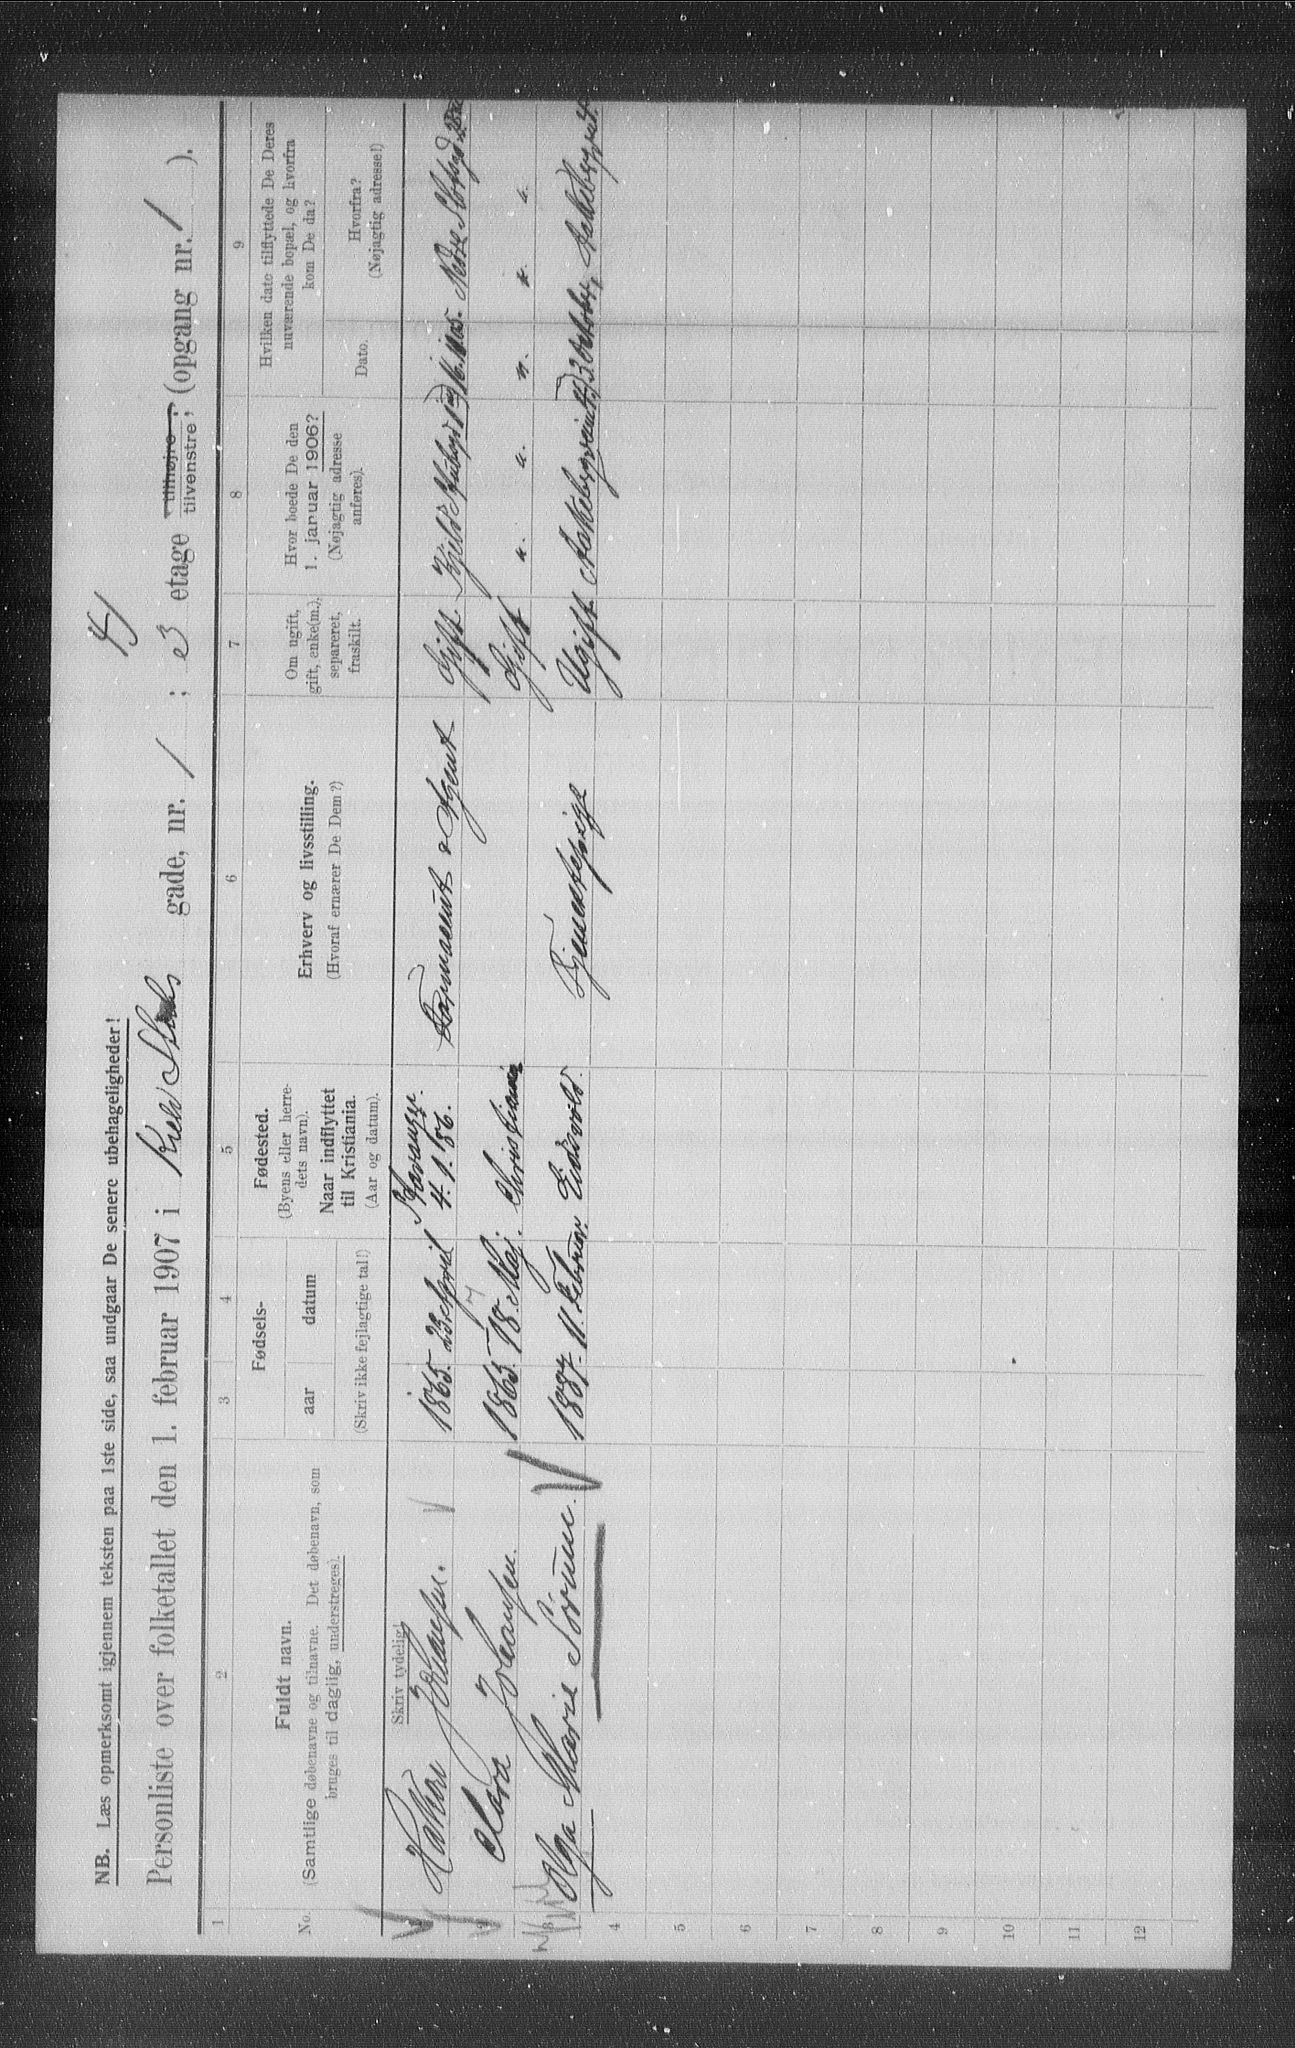 4
NB. Læs opmerksomt igjennem teksten paa 1ste side, saa undgaar De senere ubehageligheder!
Personliste over folketallet den 1. februar 1907 i Kield Stubs gade, nr. 1; 3 etage tilhøjre; tilvenstre; (opgang nr. 1).
1 2 3 4 5 6 7 8 9
No.
Fuldt navn.
(Samtlige døbenavne og tilnavne. Det døbenavn, som
bruges til daglig, understreges).
Skriv tydelig!
Fødsels-
aar datum
(Skriv ikke fejlagtige tal!)
Fødested.
(Byens eller herre-
dets navn).
Naar indflyttet
til Kristiania.
(Aar og datum).
Erhverv og livsstilling.
(Hvoraf ernærer De Dem?)
Om ugift,
gift, enke(m.),
separeret,
fraskilt.
Hvor boede De den
1. januar 1906?
(Nøjagtig adresse
anføres).
Hvilken dato tilflyttede De Deres
nuværende bopæl, og hvorfra
kom De da?
Dato.
Hvorfra?
(Nøjagtig adresse!)
1 Hakon Johansen. 1865. 23 April Stavanger. 4.1.86. Farmaceut & Agent Gift. Nedre
2 Clara Johansen. 1865. 18. Maj. Christiania Gift " " " " "
3 Olga Marie Sörum. 1887. 11. Februar Eidsvold. Tjenestepige Ugift
4
5
6
7
8
9
10
11
12